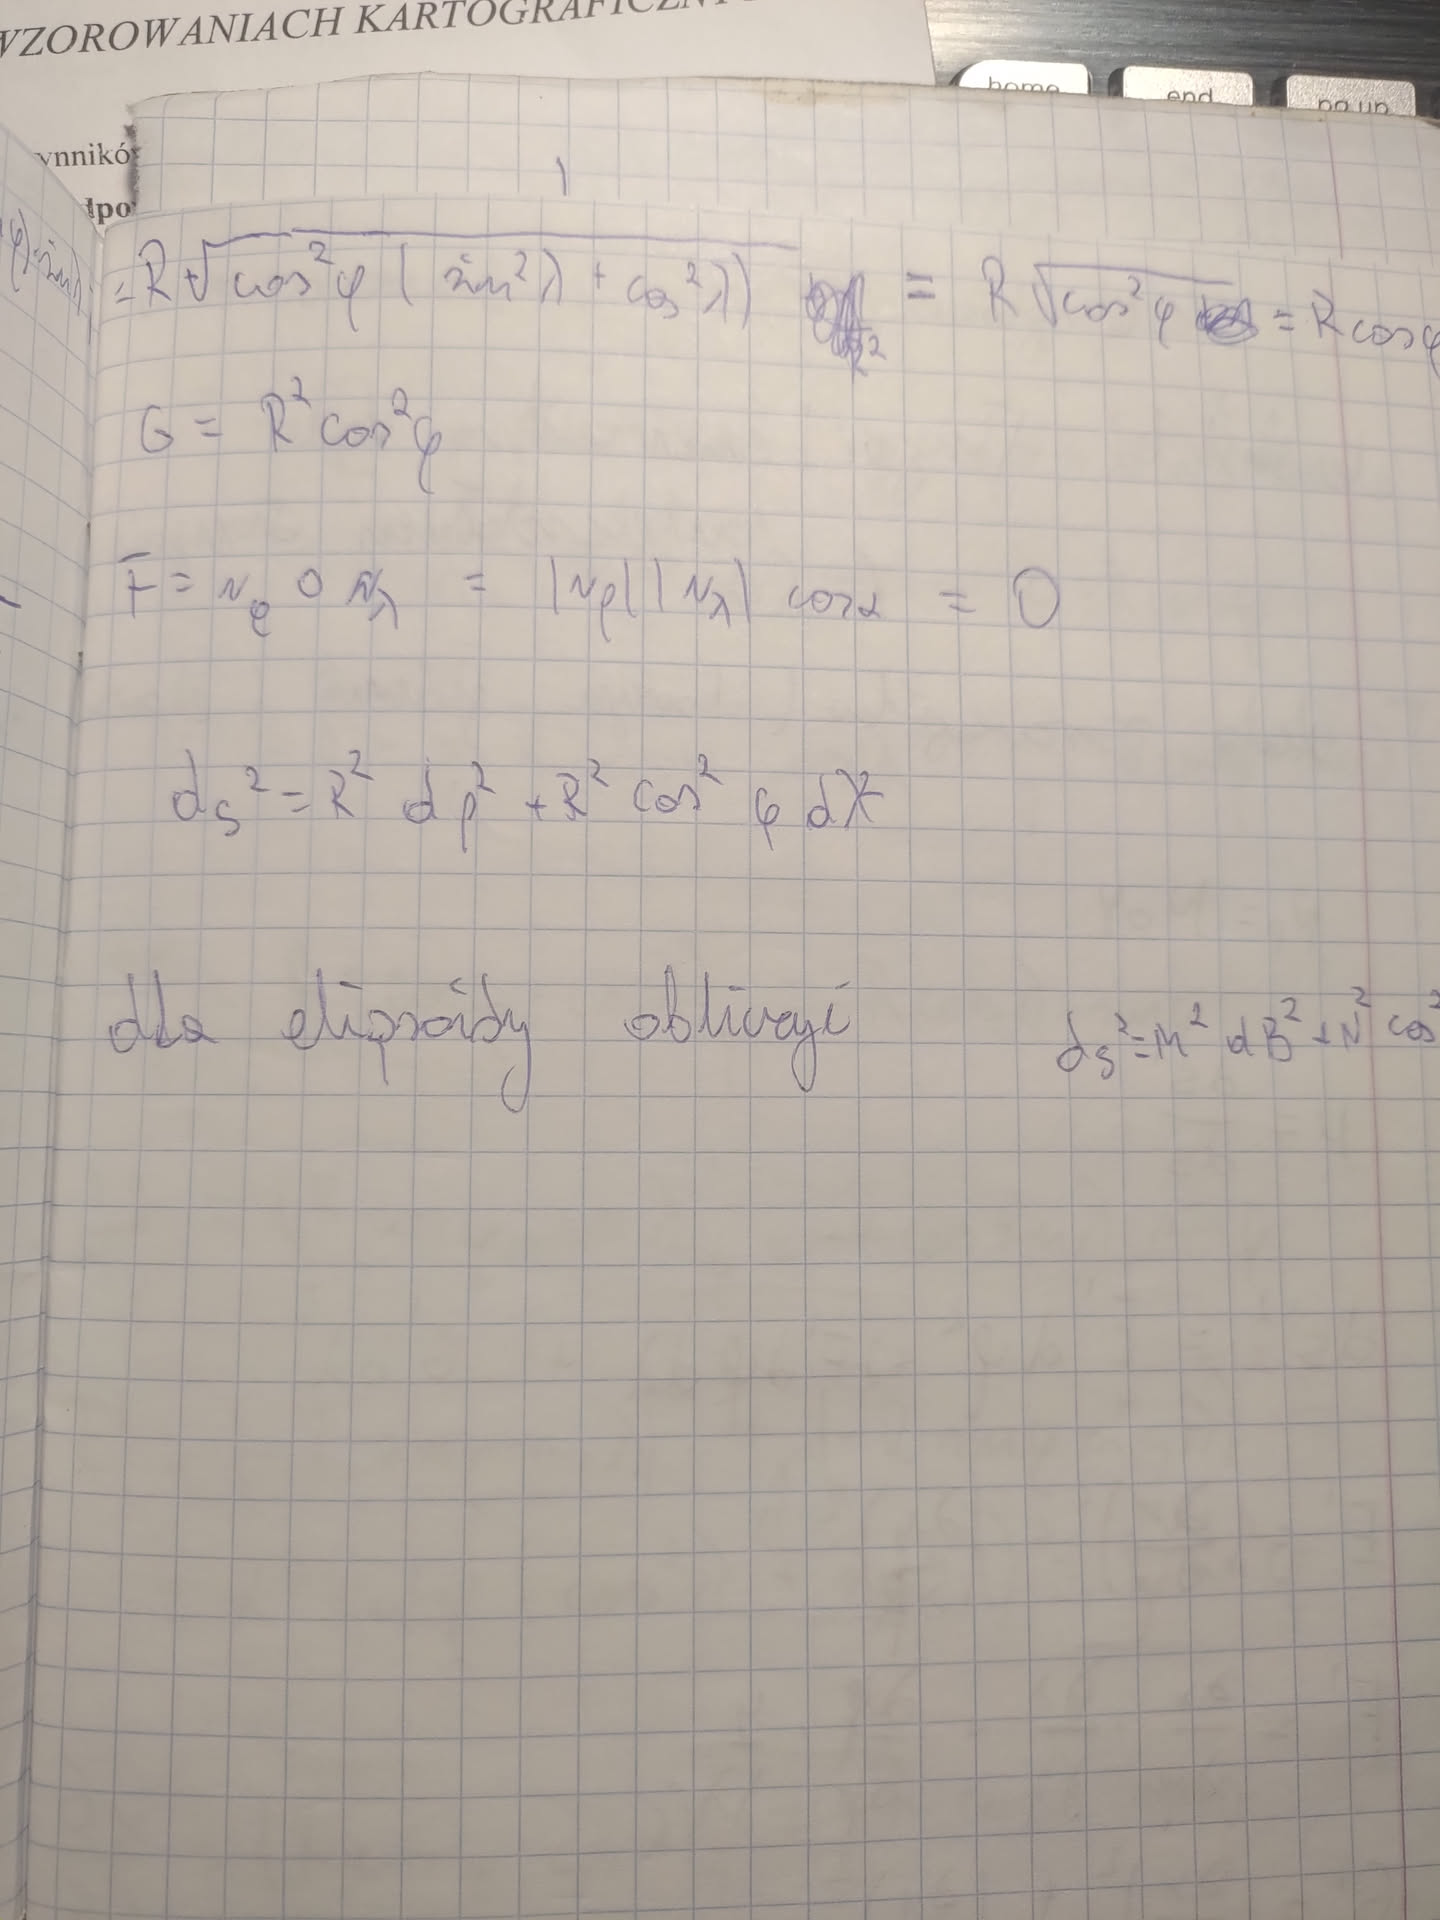 WZOROWANIACH KARTOGRAFICZNY
home end pg up
ynnikó
dpo
1
= R √cos²φ (sin²λ + cos²λ) = R √cos²φ = R cosφ
G = R² cos²φ
F = r_φ ∘ r_λ = |r_φ| |r_λ| cosα = 0
ds² = R² dφ² + R² cos² φ dλ²
dla elipsoidy oblivayi ds² = M² dB² + N² cos²